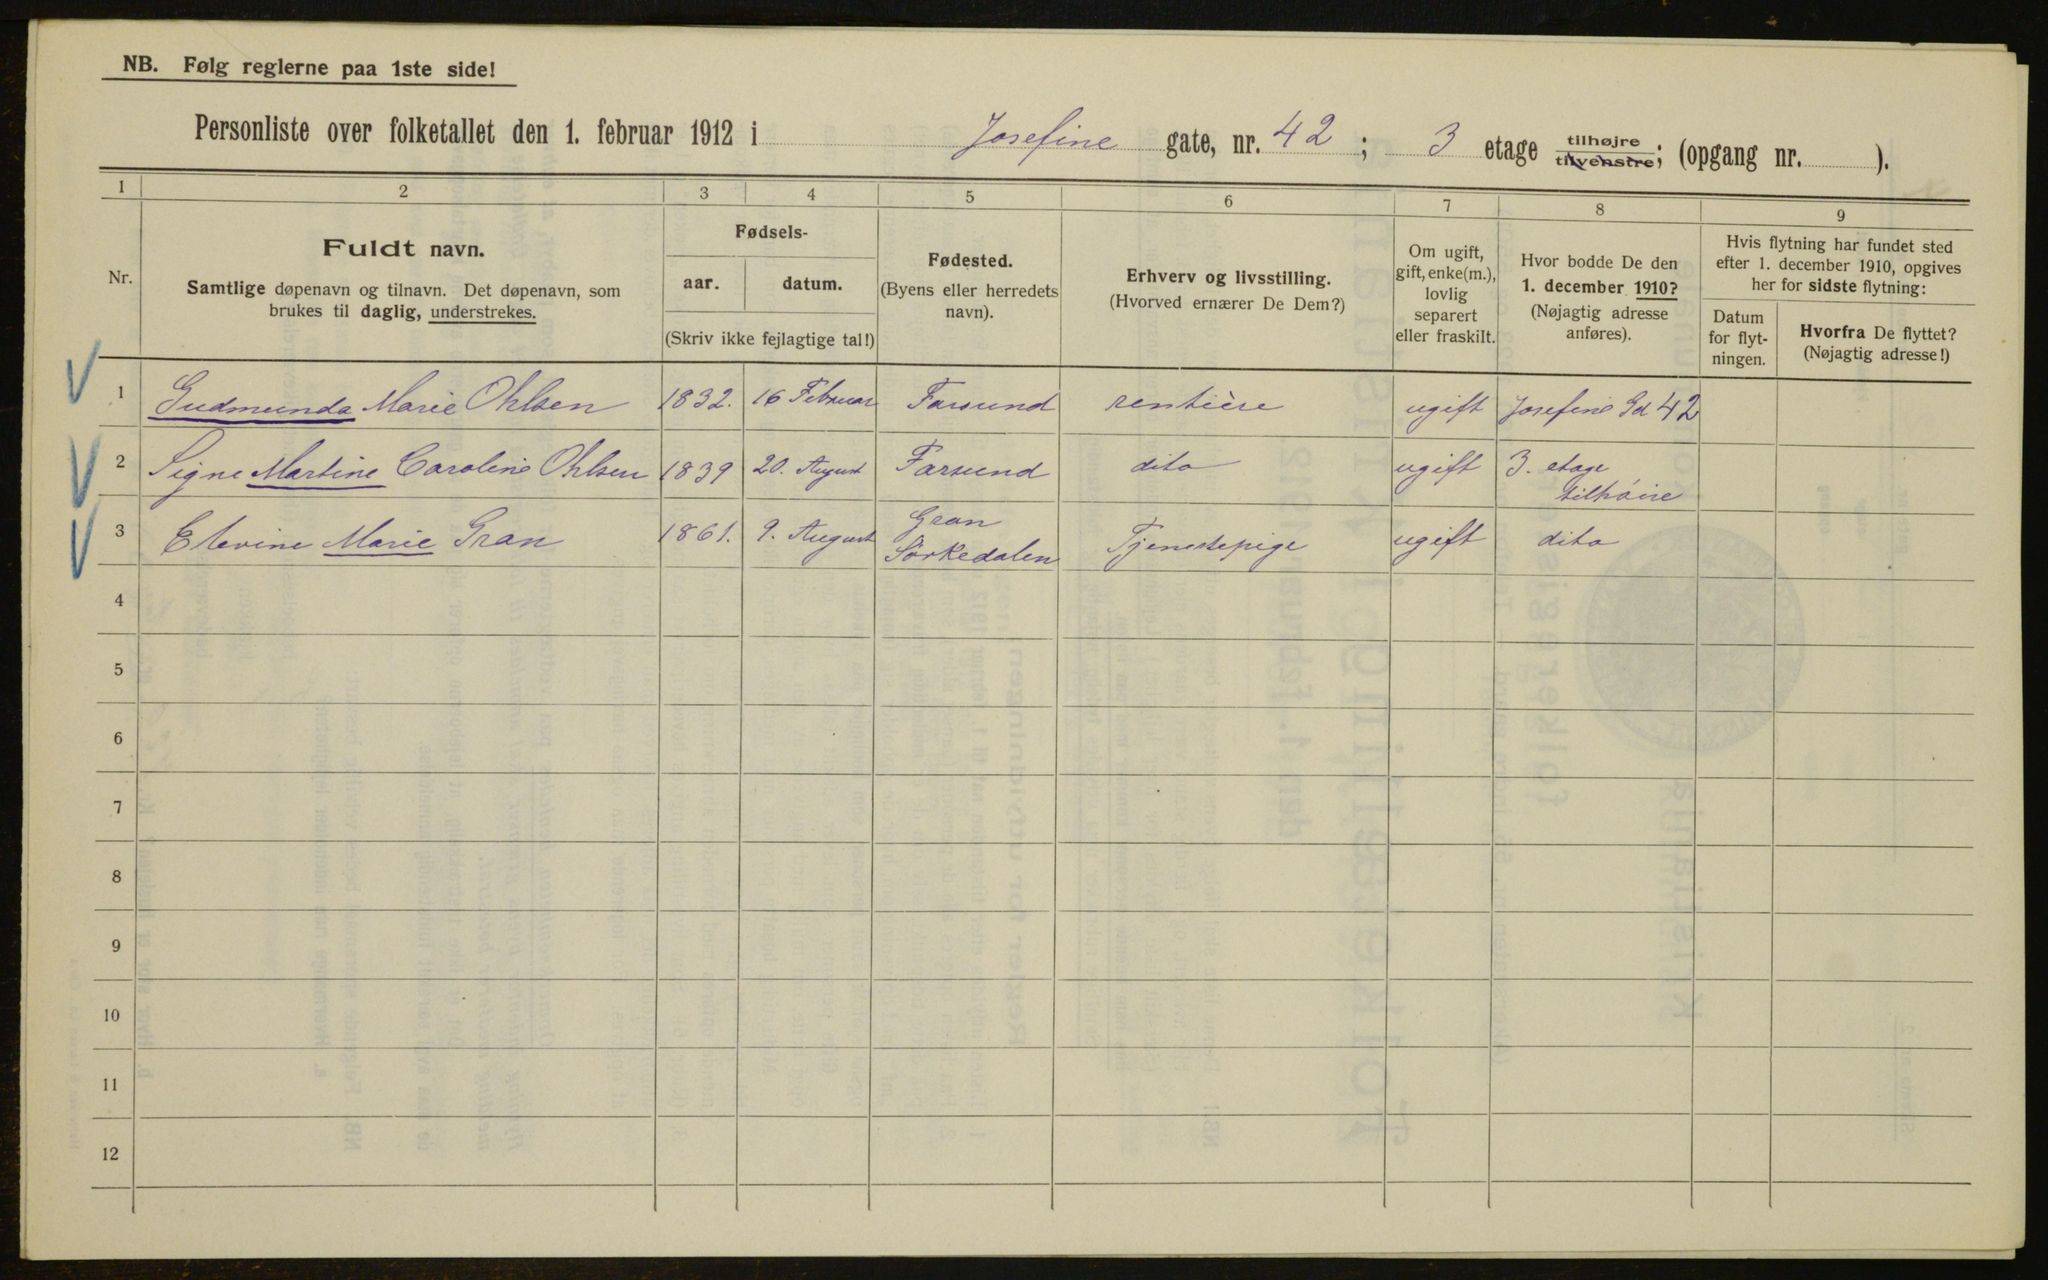 NB. Følg reglerne paa 1ste side!
Personliste over folketallet den 1. februar 1912 i Josefine gate, nr. 42 ; 3 etage tilhøjre tilvenstre; (opgang nr. ).
1 2 3 4 5 6 7 8 9
Nr.
Fuldt navn.
Samtlige døpenavn og tilnavn. Det døpenavn, som
brukes til daglig, understrekes.
Fødsels-
aar. datum.
(Skriv ikke fejlagtige tal!)
Fødested.
(Byens eller herredets
navn).
Erhverv og livsstilling.
(Hvorved ernærer De Dem?)
Om ugift,
gift, enke(m.),
lovlig
separert
eller fraskilt.
Hvor bodde De den
1. december 1910?
(Nøjagtig adresse
anføres).
Hvis flytning har fundet sted
efter 1. december 1910, opgives
her for sidste flytning:
Datum
for flyt-
ningen.
Hvorfra De flyttet?
(Nøjagtig adresse!)
1 Gudmunda Marie Ohlsen 1832. 16 Februar Farsund rentière ugift Josefine Gd 42
2 Signe Martine Caroline Ohlsen 1839 20. August Farsund dito ugift 3. etage
tilhöire
3 Elevine Marie Gran 1861. 9. August Gran
Sörkedalen Tjenestepige ugift dito
4
5
6
7
8
9
10
11
12